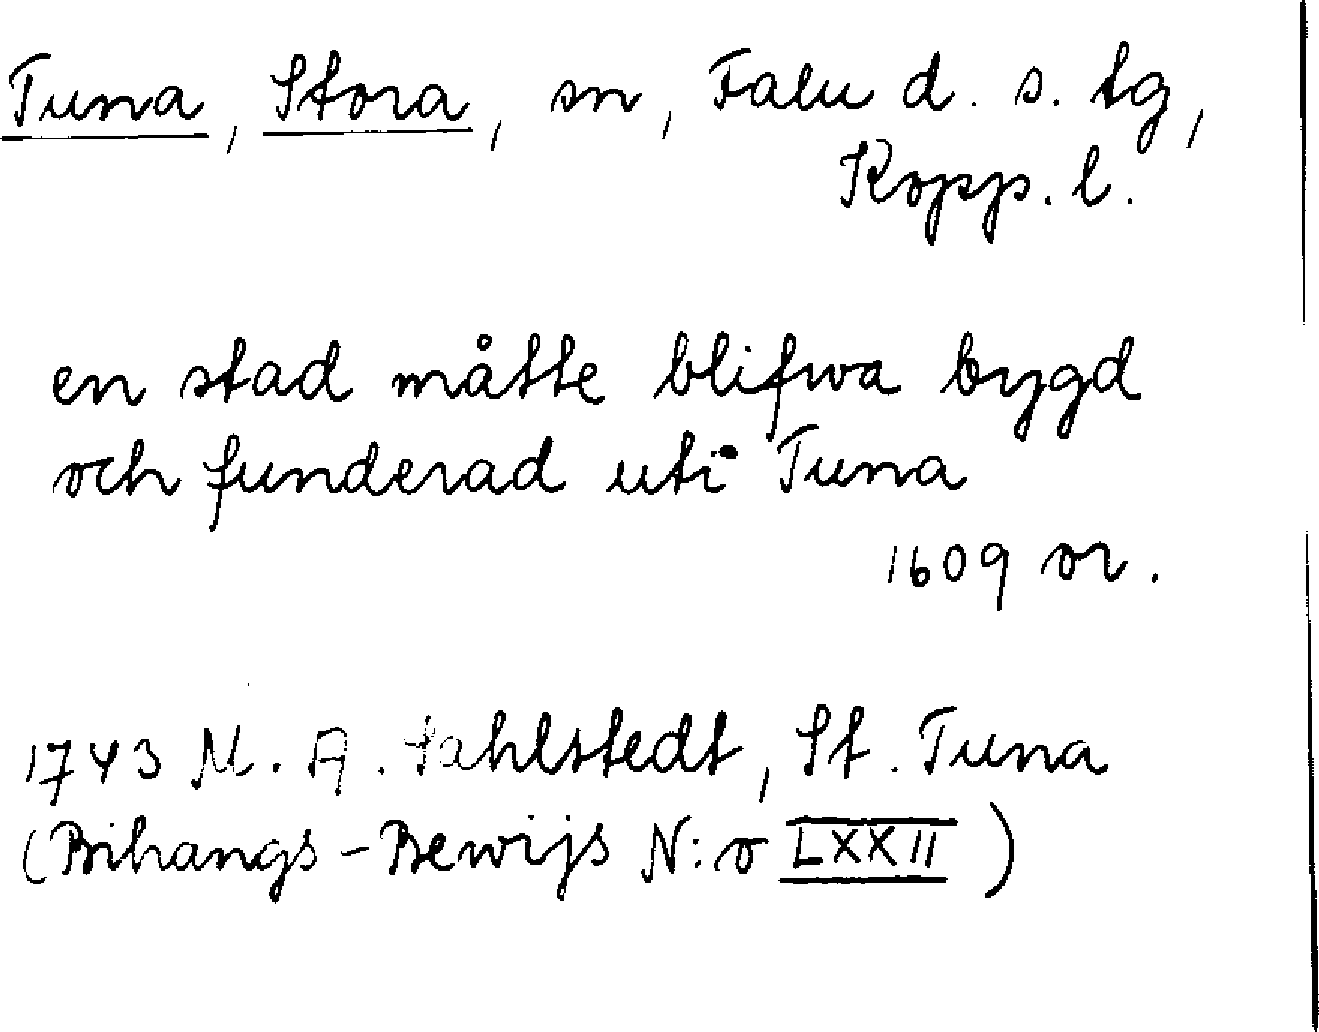 Tuna, Stora, sn, Falu d. s. tg,
Kopp. l.
en stad måtte blifwa bygd
och funderad uti Tuna
1609 or.
1743 M. A. Sahlstedt, St. Tuna
(Bihangs-Bewijs N:o LXXII)